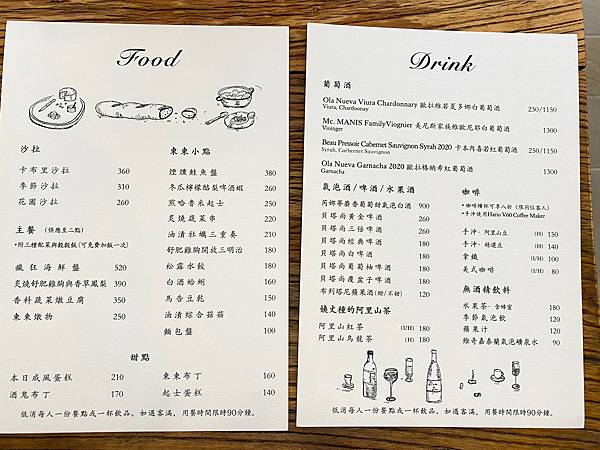 Food
沙拉
卡布里沙拉 360
季節沙拉 310
花園沙拉 260
主餐 (供應至二點)
•附三種配菜與穀穀飯(可免費加飯一次)
瘋狂海鮮盤 520
炙燒舒肥雞胸與香草鳳梨 390
香料蔬菜燉豆腐 350
東東燉物 250
東東小點
煙燻鮭魚盤 380
冬瓜檸檬酪梨啤酒蝦 260
煎哈魯米起士 250
炙燒蔬菜串 220
油漬牡蠣三重奏 210
舒肥雞胸開放三明治 180
松露水餃 180
白酒蛤蜊 180
馬告豆乾 150
油漬綜合菇菇 140
麵包盤 100
甜點
本日戚風蛋糕 210
酒鬼布丁 170
東東布丁 160
起士蛋糕 140
低消每人一份餐點或一杯飲品。如遇客滿，用餐時間限時90分鐘。
Drink
葡萄酒
Ola Nueva Viura Chardonnary 歐拉維若夏多娜白葡萄酒 250/1150
Viura, Chardonnay
Mc. MANIS FamilyViognier 美尼斯家族維歐尼耶白葡萄酒 1300
Vioinger
Beau Pressoir Cabernet Sauvignon Syrah 2020 卡本內喜若紅葡萄酒 250/1150
Syrah, Carbernet Sauvignon
Ola Nueva Garnacha 2020 歐拉格納希紅葡萄酒 1300
Garnacha
氣泡酒/啤酒/水果酒
芮娜蒂麝香葡萄甜氣泡白酒 900
貝塔尚黃金啤酒 260
貝塔尚三倍啤酒 260
貝塔尚經典啤酒 180
貝塔尚白啤酒 180
貝塔尚葡萄柚啤酒 180
貝塔尚覆盆子啤酒 180
布利塔尼蘋果酒(甜/不甜) 120
嬈丈種的阿里山茶
阿里山紅茶 (I/H) 180
阿里山烏龍茶 (H) 180
咖啡
•咖啡續杯可享八折 (限同位客人)
•手沖使用Hario V60 Coffee Maker
手沖-阿里山豆 (H) 150
手沖-精選豆 (H) 140
拿鐵 (I/H) 100
美式咖啡 (I/H) 80
無酒精飲料
水果茶-含蜂蜜 180
季節氣泡飲 120
蘋果汁 120
維奇嘉泰蘭氣泡礦泉水 90
低消每人一份餐點或一杯飲品。如遇客滿，用餐時間限時90分鐘。